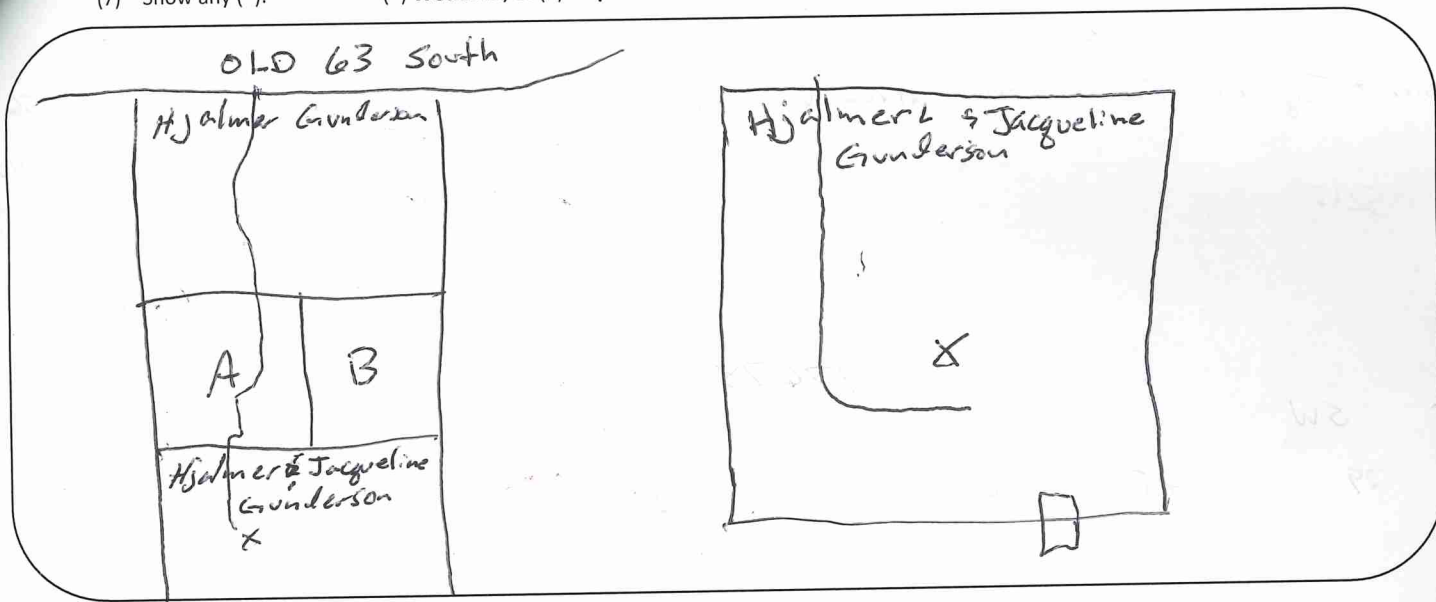 (7) Show any
OLD 63 South
Hjalmer Gunderson
A
B
Hjalmer & Jacqueline
Gunderson
X
Hjalmer L & Jacqueline
Gunderson
X